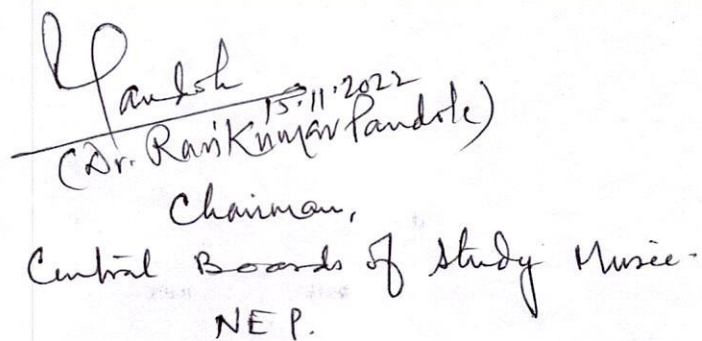 Pandole
15.11.2022
(Dr. Ravi Kumar Pandole)
Chairman,
Central Boards of Study Music.
NEP.